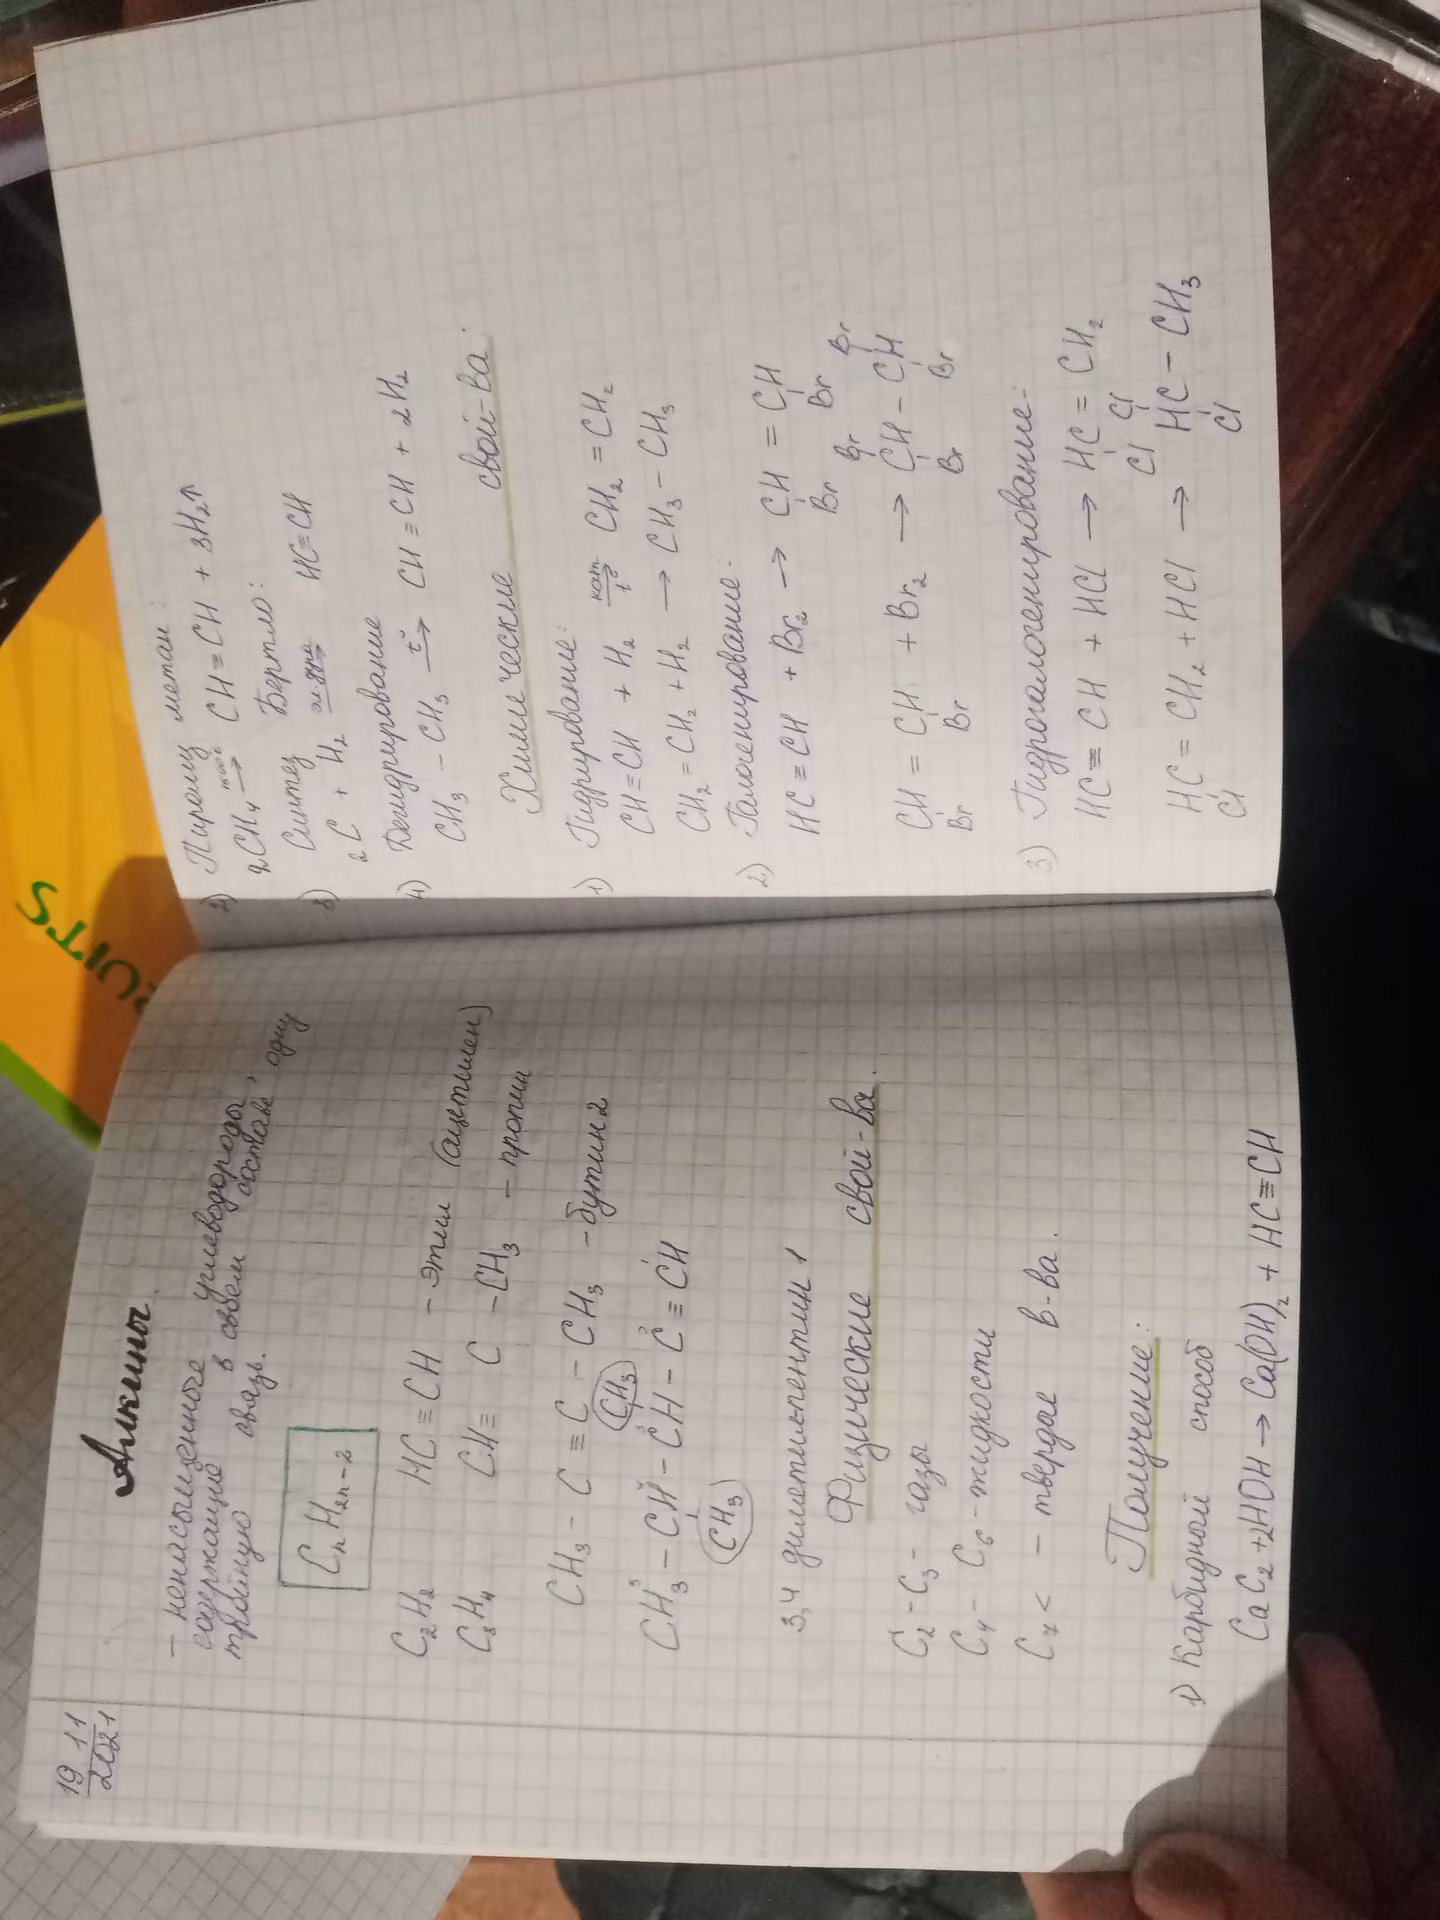 19 11
2021
Алкины.
- ненасыщенные углеводороды,
содержащие в своем составе одну
тройную связь.
CnH2n-2
C2H2 HC≡CH - этин (ацетилен)
C3H4 CH≡ C -CH3 - пропин
CH3 - C ≡ C - CH3 - бутин 2
CH3
CH3 - CH - CH - C ≡ CH
CH3
3,4 диметилпентин 1
Физические свой-ва.
C2 - C3 - газы
C4 - C6 - жидкости
C7 < - твердые в-ва.
Получение:
1) Карбидный способ
CaC2 + 2HOH → Ca(OH)2 + HC≡CH
2) Пиролиз метан:
2CH4 → CH≡CH + 3H2↑
3) Синтез Бертло:
2C + H2 → HC≡CH
4) Дегидрирование
CH3 - CH3 t° → CH≡CH + 2H2
Химические свой-ва.
1) Гидрирование:
CH≡CH + H2 кат t° → CH2 = CH2
CH2 = CH2 + H2 → CH3 - CH3
2) Галогенирование:
HC≡CH + Br2 → CH = CH
Br Br
Br Br
CH = CH + Br2 → CH - CH
Br Br Br Br
3) Гидрогалогенирование:
HC≡CH + HCl → HC = CH2
Cl
Cl
HC = CH2 + HCl → HC - CH3
Cl Cl
UITS